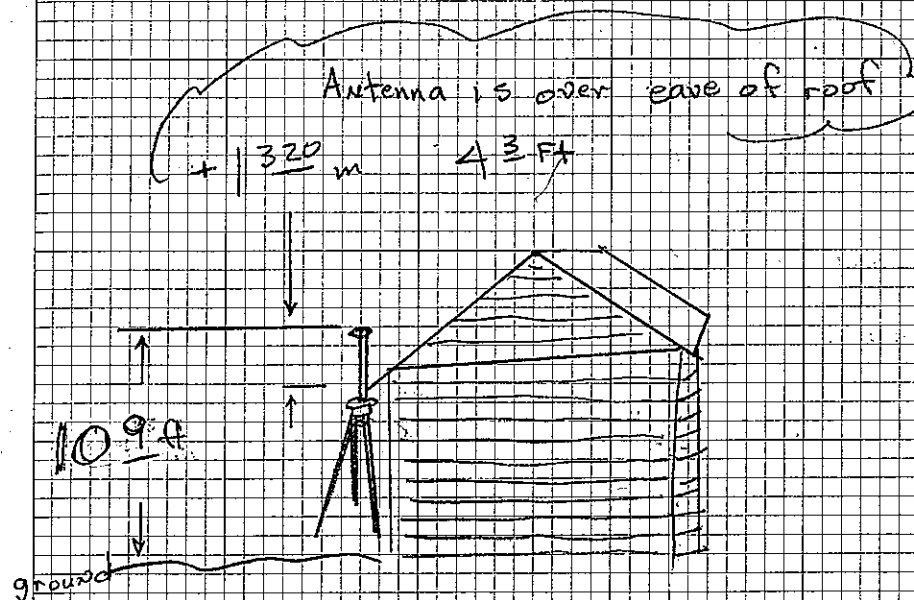 Antenna is over eave of roof
+ 1 320 m 4 3 Ft
10 9 ft
ground